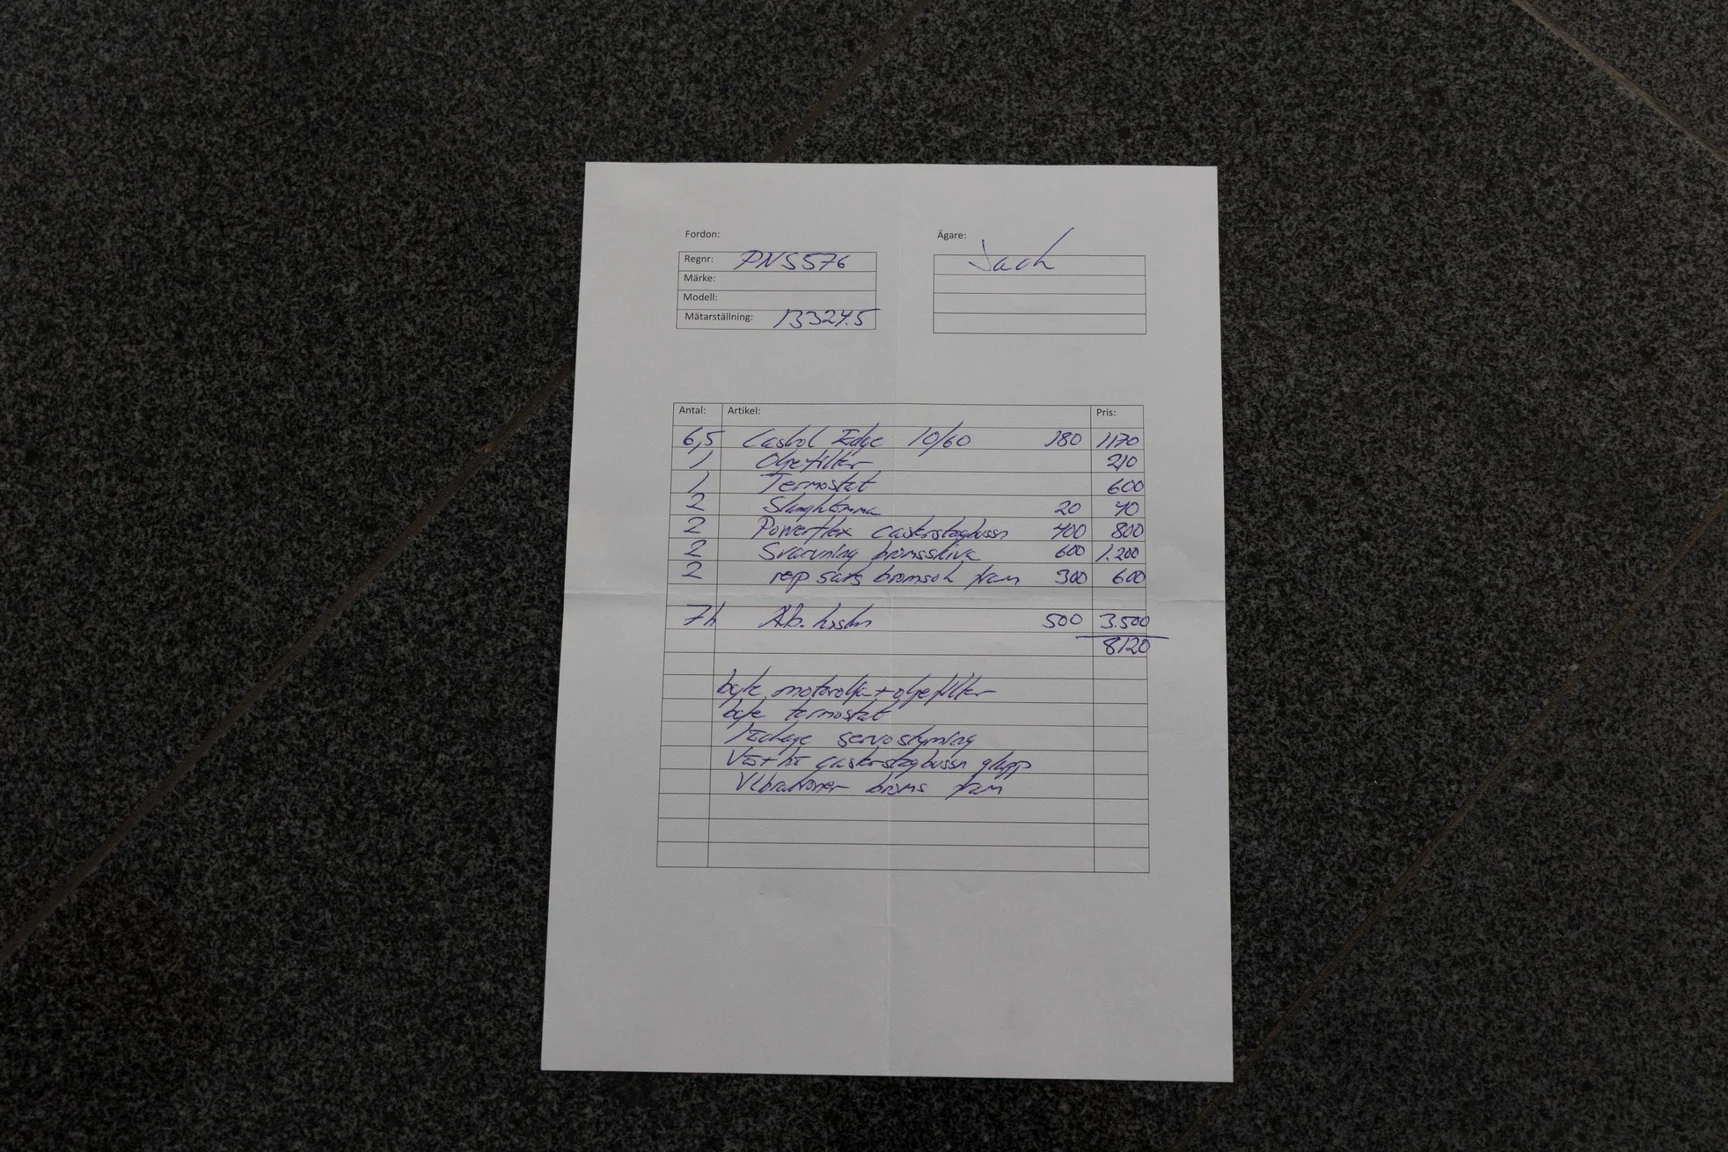 Fordon:
Ägare:
Regnr: PNS576
Jach
Märke:
Modell:
Mätarställning: 133245
Antal: Artikel: Pris:
6,5 Castrol Edge 10/60 180 1170
1 Oljefilter 210
1 Termostat 600
2 Slangklämma 20 40
2 Powerflex casterstagbussn 400 800
2 Svarvning bromsskiva 600 1.200
2 rep sats bromsok fram 300 600
7h Arb. kostn 500 3.500
8120
byte motorolja + oljefilter
byte termostat
läckage servostyrning
Vä + hö casterstagbussn glapp
Vibrationer broms fram